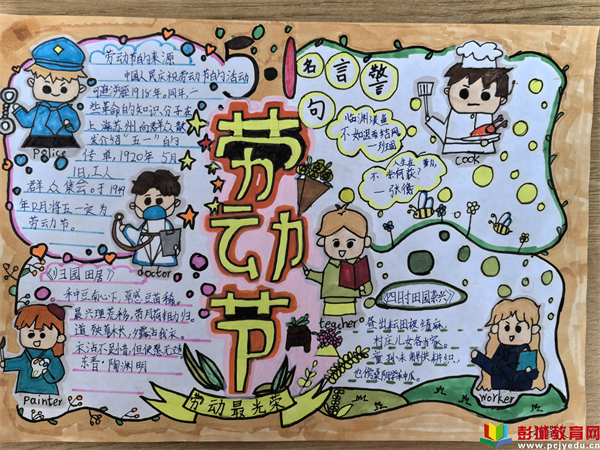 劳动节的来源
中国人民庆祝劳动节的活动
可追溯至1918年。同年,一
些革命的知识分子在
上海苏州向群众散
发介绍"五一"的
传单,1920年5月
1日,工人
群众集会。于1949
年12月将五一定为
劳动节。
Police
doctor
《归园田居》
种豆南山下,草盛豆苗稀。
晨兴理荒秽,带月荷锄归。
道狭草木长,夕露沾我衣。
衣沾不足惜,但使愿无违
东晋·陶渊明
painter
5·1
劳动节
劳动最光荣
名言警句
临渊羡鱼
不如退而结网
班固
人生在勤,
不索何获?
——张衡
cook
teacher
《四时田园杂兴》
昼出耘田夜绩麻,
村庄儿女各当家。
童孙未解供耕织,
也傍桑阴学种瓜。
worker
彭城教育网
www.pcjyedu.cn